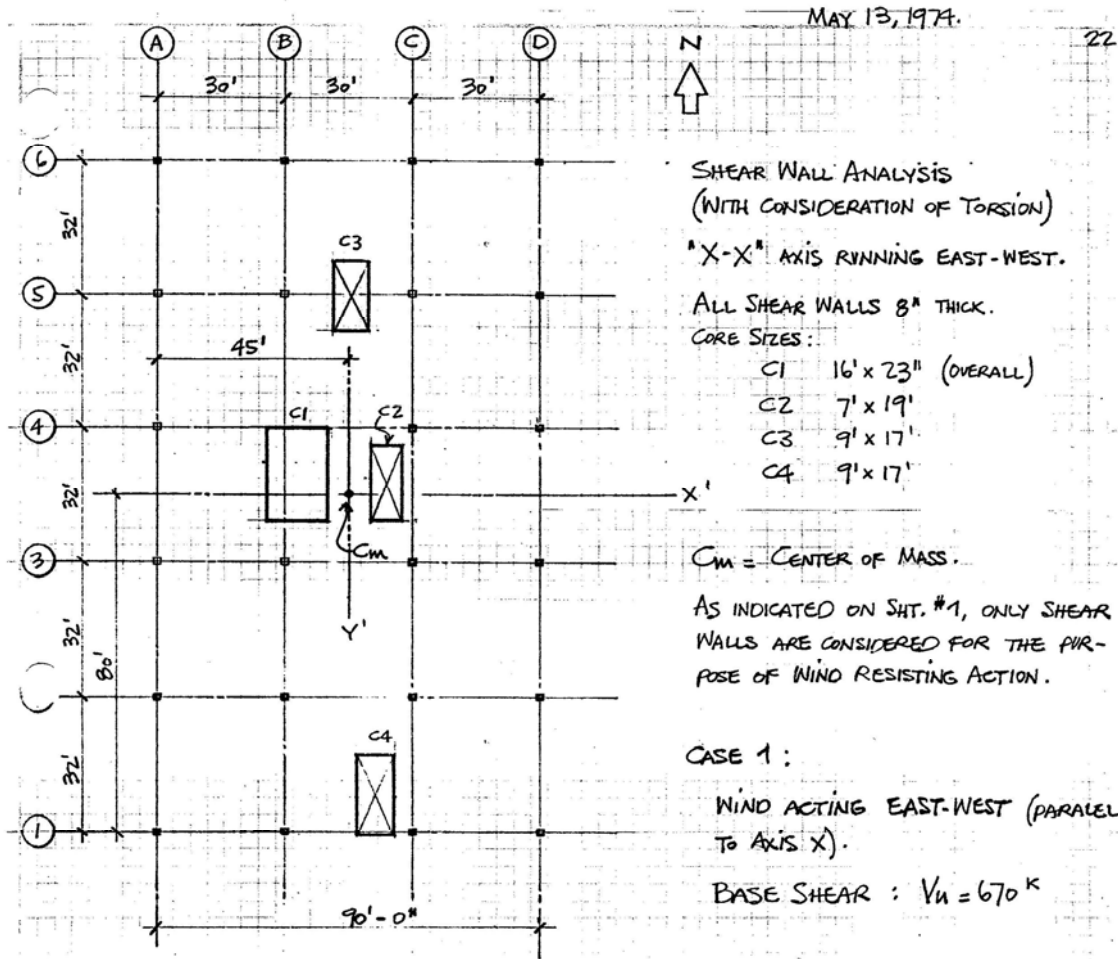 MAY 13, 1974.
22
A B C D
N
30' 30' 30'
6
32'
SHEAR WALL ANALYSIS
(WITH CONSIDERATION OF TORSION)
"X-X" AXIS RUNNING EAST-WEST.
C3
5
ALL SHEAR WALLS 8" THICK.
CORE SIZES:
45'
32'
C1 16' x 23" (OVERALL)
C2 7' x 19'
C3 9' x 17'
C4 9' x 17'
4
C1 C2
32'
X'
Cm
3
Cm = CENTER OF MASS.
Y'
AS INDICATED ON SHT. #1, ONLY SHEAR
WALLS ARE CONSIDERED FOR THE PUR-
POSE OF WIND RESISTING ACTION.
32'
80'
C4
32'
CASE 1:
WIND ACTING EAST-WEST (PARALEL
TO AXIS X).
1
BASE SHEAR : Vu = 670 K
90'-0"